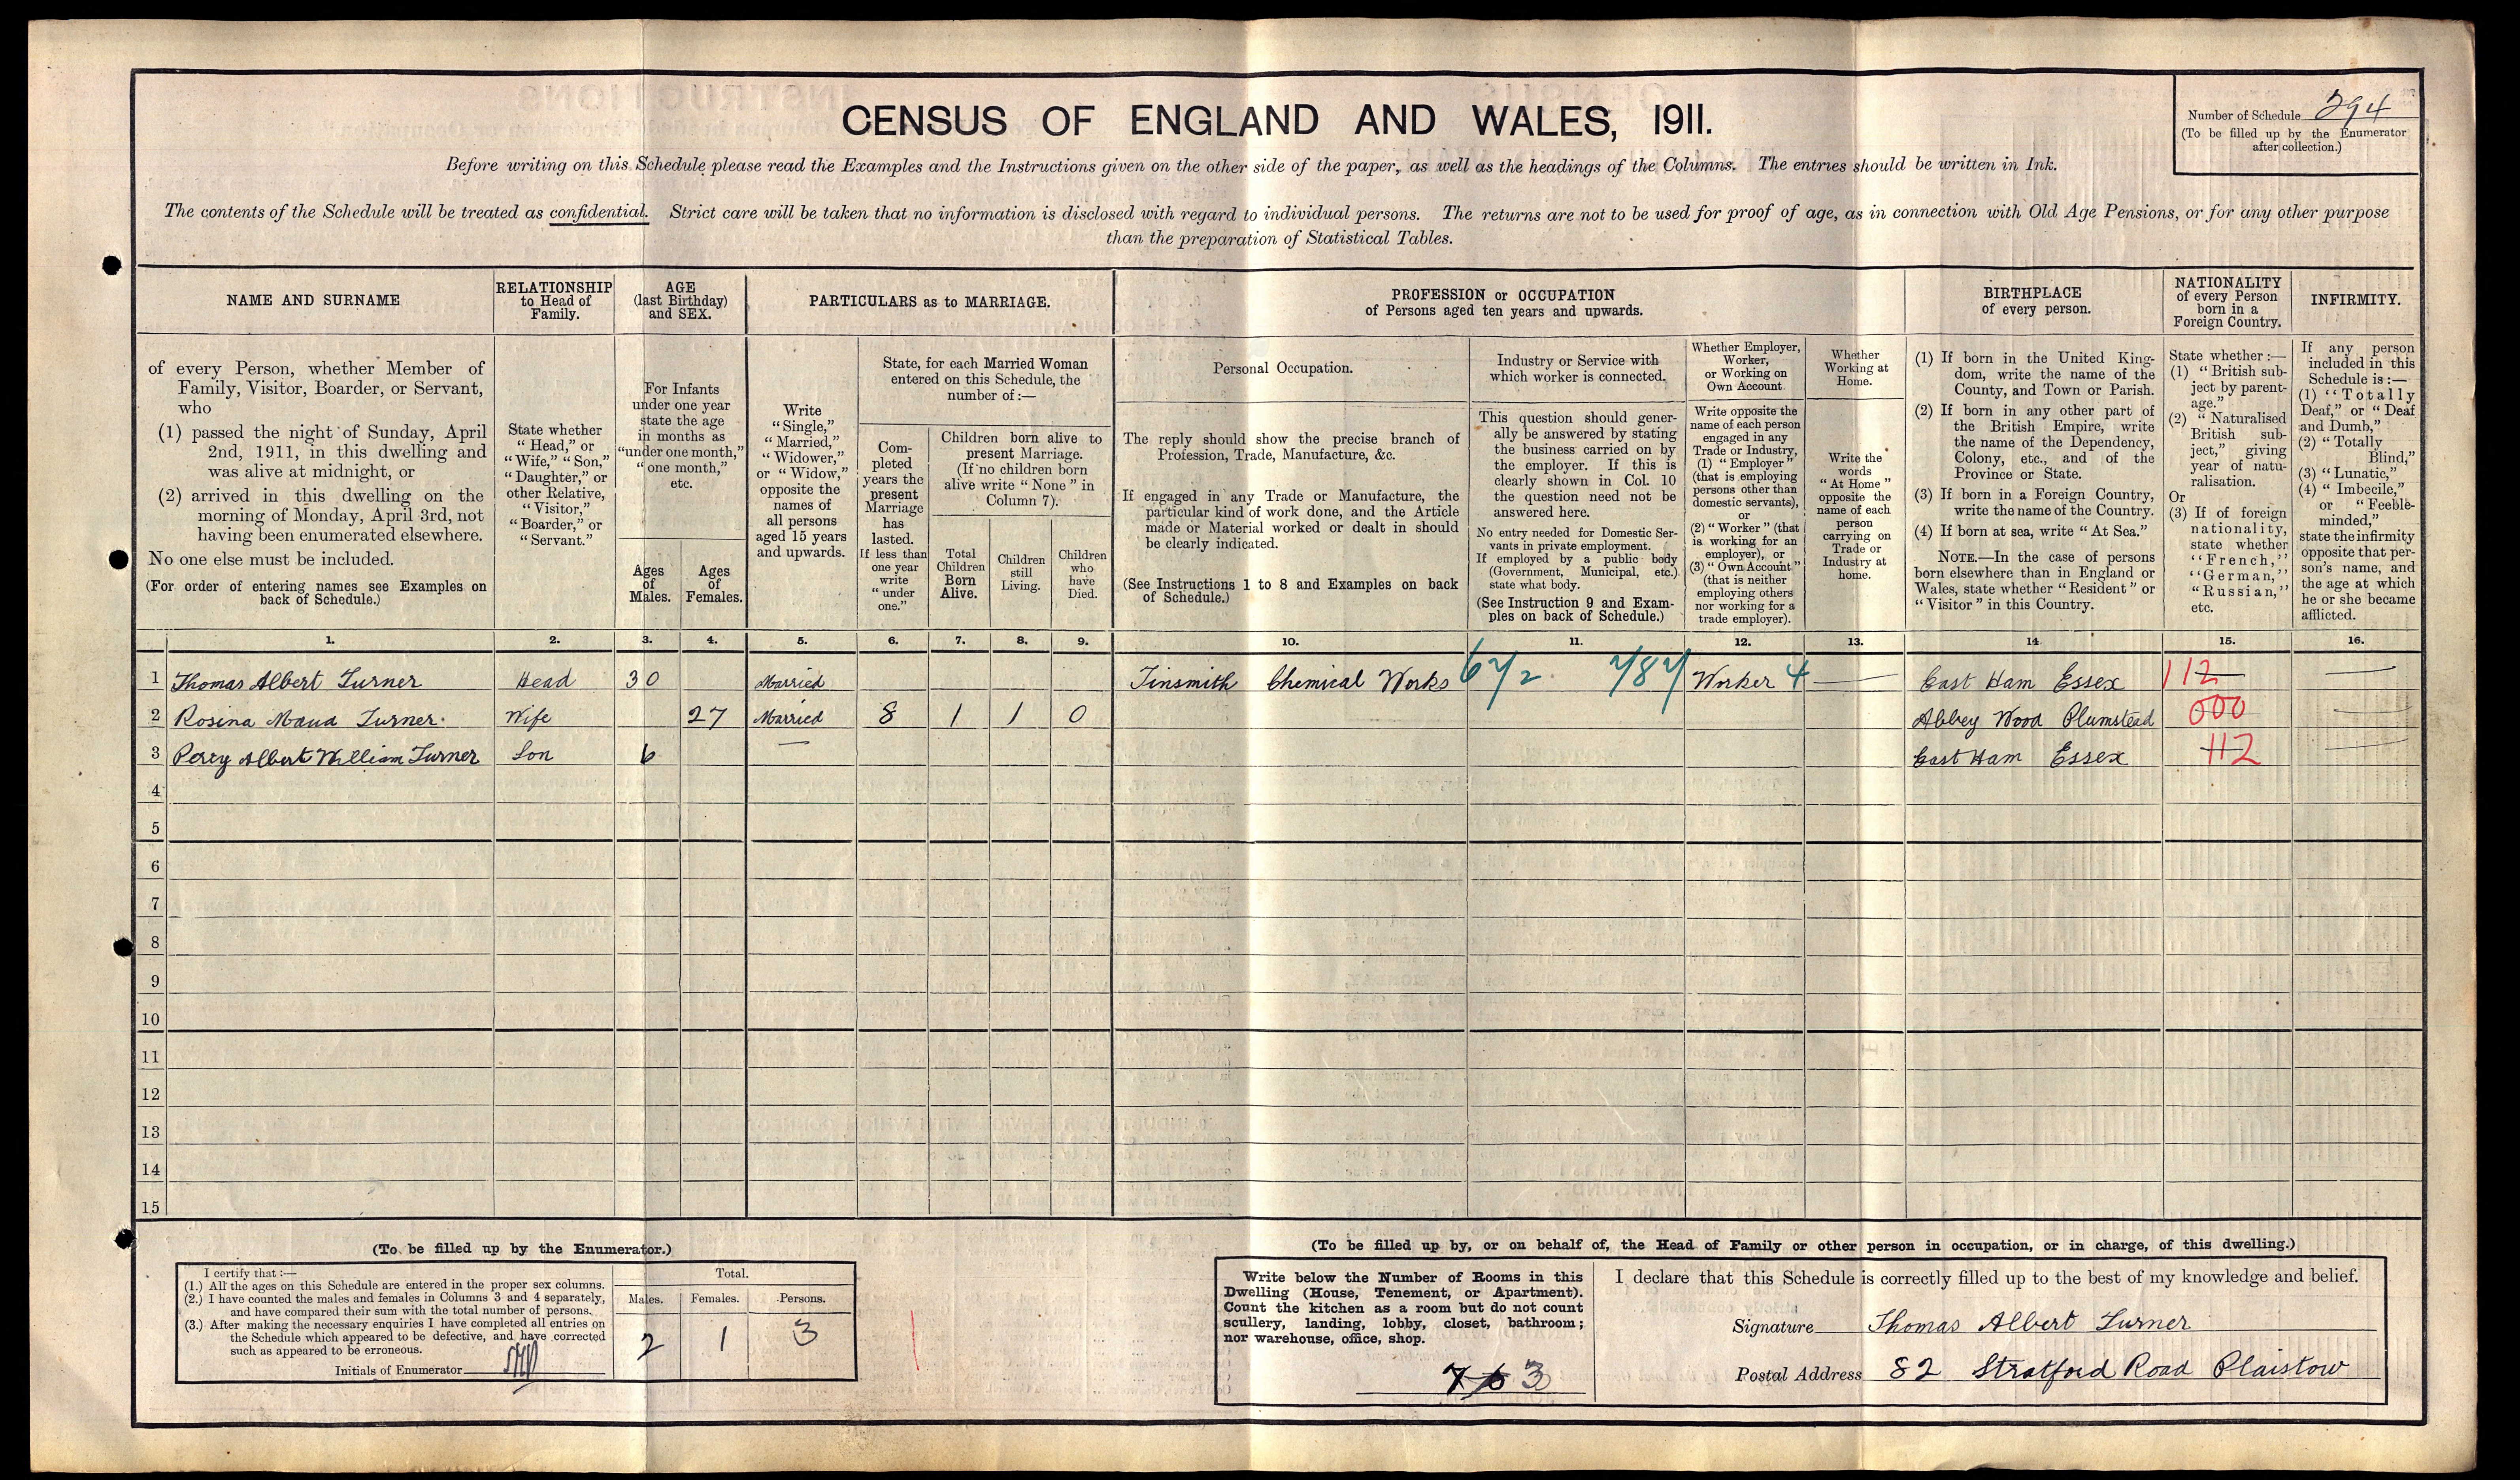 CENSUS OF ENGLAND AND WALES, 1911.
Number of Schedule 294
(To be filled up by the Enumerator
after collection.)
Before writing on this Schedule please read the Examples and the Instructions given on the other side of the paper, as well as the headings of the Columns. The entries should be written in Ink.
The contents of the Schedule will be treated as confidential. Strict care will be taken that no information is disclosed with regard to individual persons. The returns are not to be used for proof of age, as in connection with Old Age Pensions, or for any other purpose
than the preparation of Statistical Tables.
NAME AND SURNAME
of every Person, whether Member of
Family, Visitor, Boarder, or Servant,
who
(1) passed the night of Sunday, April
2nd, 1911, in this dwelling and
was alive at midnight, or
(2) arrived in this dwelling on the
morning of Monday, April 3rd, not
having been enumerated elsewhere.
No one else must be included.
(For order of entering names see Examples on
back of Schedule.)
RELATIONSHIP
to Head of
Family.
State whether
"Head," or
"Wife," "Son,"
"Daughter," or
other Relative,
"Visitor,"
"Boarder," or
"Servant."
AGE
(last Birthday)
and SEX.
For Infants
under one year
state the age
in months as
"under one month,"
"one month,"
etc.
Ages
of
Males.
Ages
of
Females.
PARTICULARS as to MARRIAGE.
Write
"Single,"
"Married,"
"Widower,"
or "Widow,"
opposite the
names of
all persons
aged 15 years
and upwards.
State, for each Married Woman
entered on this Schedule, the
number of:—
Com-
pleted
years the
present
Marriage
has
lasted.
If less than
one year
write
"under
one."
Children born alive to
present Marriage.
(If no children born
alive write "None" in
Column 7).
Total
Children
Born
Alive.
Children
still
Living.
Children
who
have
Died.
PROFESSION or OCCUPATION
of Persons aged ten years and upwards.
Personal Occupation.
The reply should show the precise branch of
Profession, Trade, Manufacture, &c.
If engaged in any Trade or Manufacture, the
particular kind of work done, and the Article
made or Material worked or dealt in should
be clearly indicated.
(See Instructions 1 to 8 and Examples on back
of Schedule.)
Industry or Service with
which worker is connected.
This question should gener-
ally be answered by stating
the business carried on by
the employer. If this is
clearly shown in Col. 10
the question need not be
answered here.
No entry needed for Domestic Ser-
vants in private employment.
If employed by a public body
(Government, Municipal, etc.)
state what body.
(See Instruction 9 and Exam-
ples on back of Schedule.)
Whether Employer,
Worker,
or Working on
Own Account.
Write opposite the
name of each person
engaged in any
Trade or Industry,
(1) "Employer"
(that is employing
persons other than
domestic servants),
or
(2) "Worker" (that
is working for an
employer), or
(3) "Own Account"
(that is neither
employing others
nor working for a
trade employer).
Whether
Working at
Home.
Write the
words
"At Home"
opposite the
name of each
person
carrying on
Trade or
Industry at
home.
BIRTHPLACE
of every person.
(1) If born in the United King-
dom, write the name of the
County, and Town or Parish.
(2) If born in any other part of
the British Empire, write
the name of the Dependency,
Colony, etc., and of the
Province or State.
(3) If born in a Foreign Country,
write the name of the Country.
(4) If born at sea, write "At Sea."
NOTE.—In the case of persons
born elsewhere than in England or
Wales, state whether "Resident" or
"Visitor" in this Country.
NATIONALITY
of every Person
born in a
Foreign Country.
State whether:—
(1) "British sub-
ject by parent-
age."
(2) "Naturalised
British sub-
ject," giving
year of natu-
ralisation.
Or
(3) If of foreign
nationality,
state whether
"French,"
"German,"
"Russian,"
etc.
INFIRMITY.
If any person
included in this
Schedule is:—
(1) "Totally
Deaf," or "Deaf
and Dumb,"
(2) "Totally
Blind,"
(3) "Lunatic,"
(4) "Imbecile,"
or "Feeble-
minded,"
state the infirmity
opposite that per-
son's name, and
the age at which
he or she became
afflicted.
1. 2. 3. 4. 5. 6. 7. 8. 9. 10. 11. 12. 13. 14. 15. 16.
1 Thomas Albert Turner Head 30 Married Tinsmith Chemical Works Worker 4 — East Ham Essex 112 —
2 Rosina Maud Turner. Wife 27 Married 8 1 1 0 Abbey Wood Plumstead 000 —
3 Percy Albert William Turner Son 6 — East Ham Essex 112 —
4
5
6
7
8
9
10
11
12
13
14
15
(To be filled up by the Enumerator.)
I certify that:—
(1.) All the ages on this Schedule are entered in the proper sex columns.
(2.) I have counted the males and females in Columns 3 and 4 separately,
and have compared their sum with the total number of persons.
(3.) After making the necessary enquiries I have completed all entries on
the Schedule which appeared to be defective, and have corrected
such as appeared to be erroneous.
Initials of Enumerator
Total.
Males. Females. Persons.
2 1 3
(To be filled up by, or on behalf of, the Head of Family or other person in occupation, or in charge, of this dwelling.)
Write below the Number of Rooms in this
Dwelling (House, Tenement, or Apartment).
Count the kitchen as a room but do not count
scullery, landing, lobby, closet, bathroom;
nor warehouse, office, shop.
3
I declare that this Schedule is correctly filled up to the best of my knowledge and belief.
Signature Thomas Albert Turner
Postal Address 82 Stratford Road Plaistow